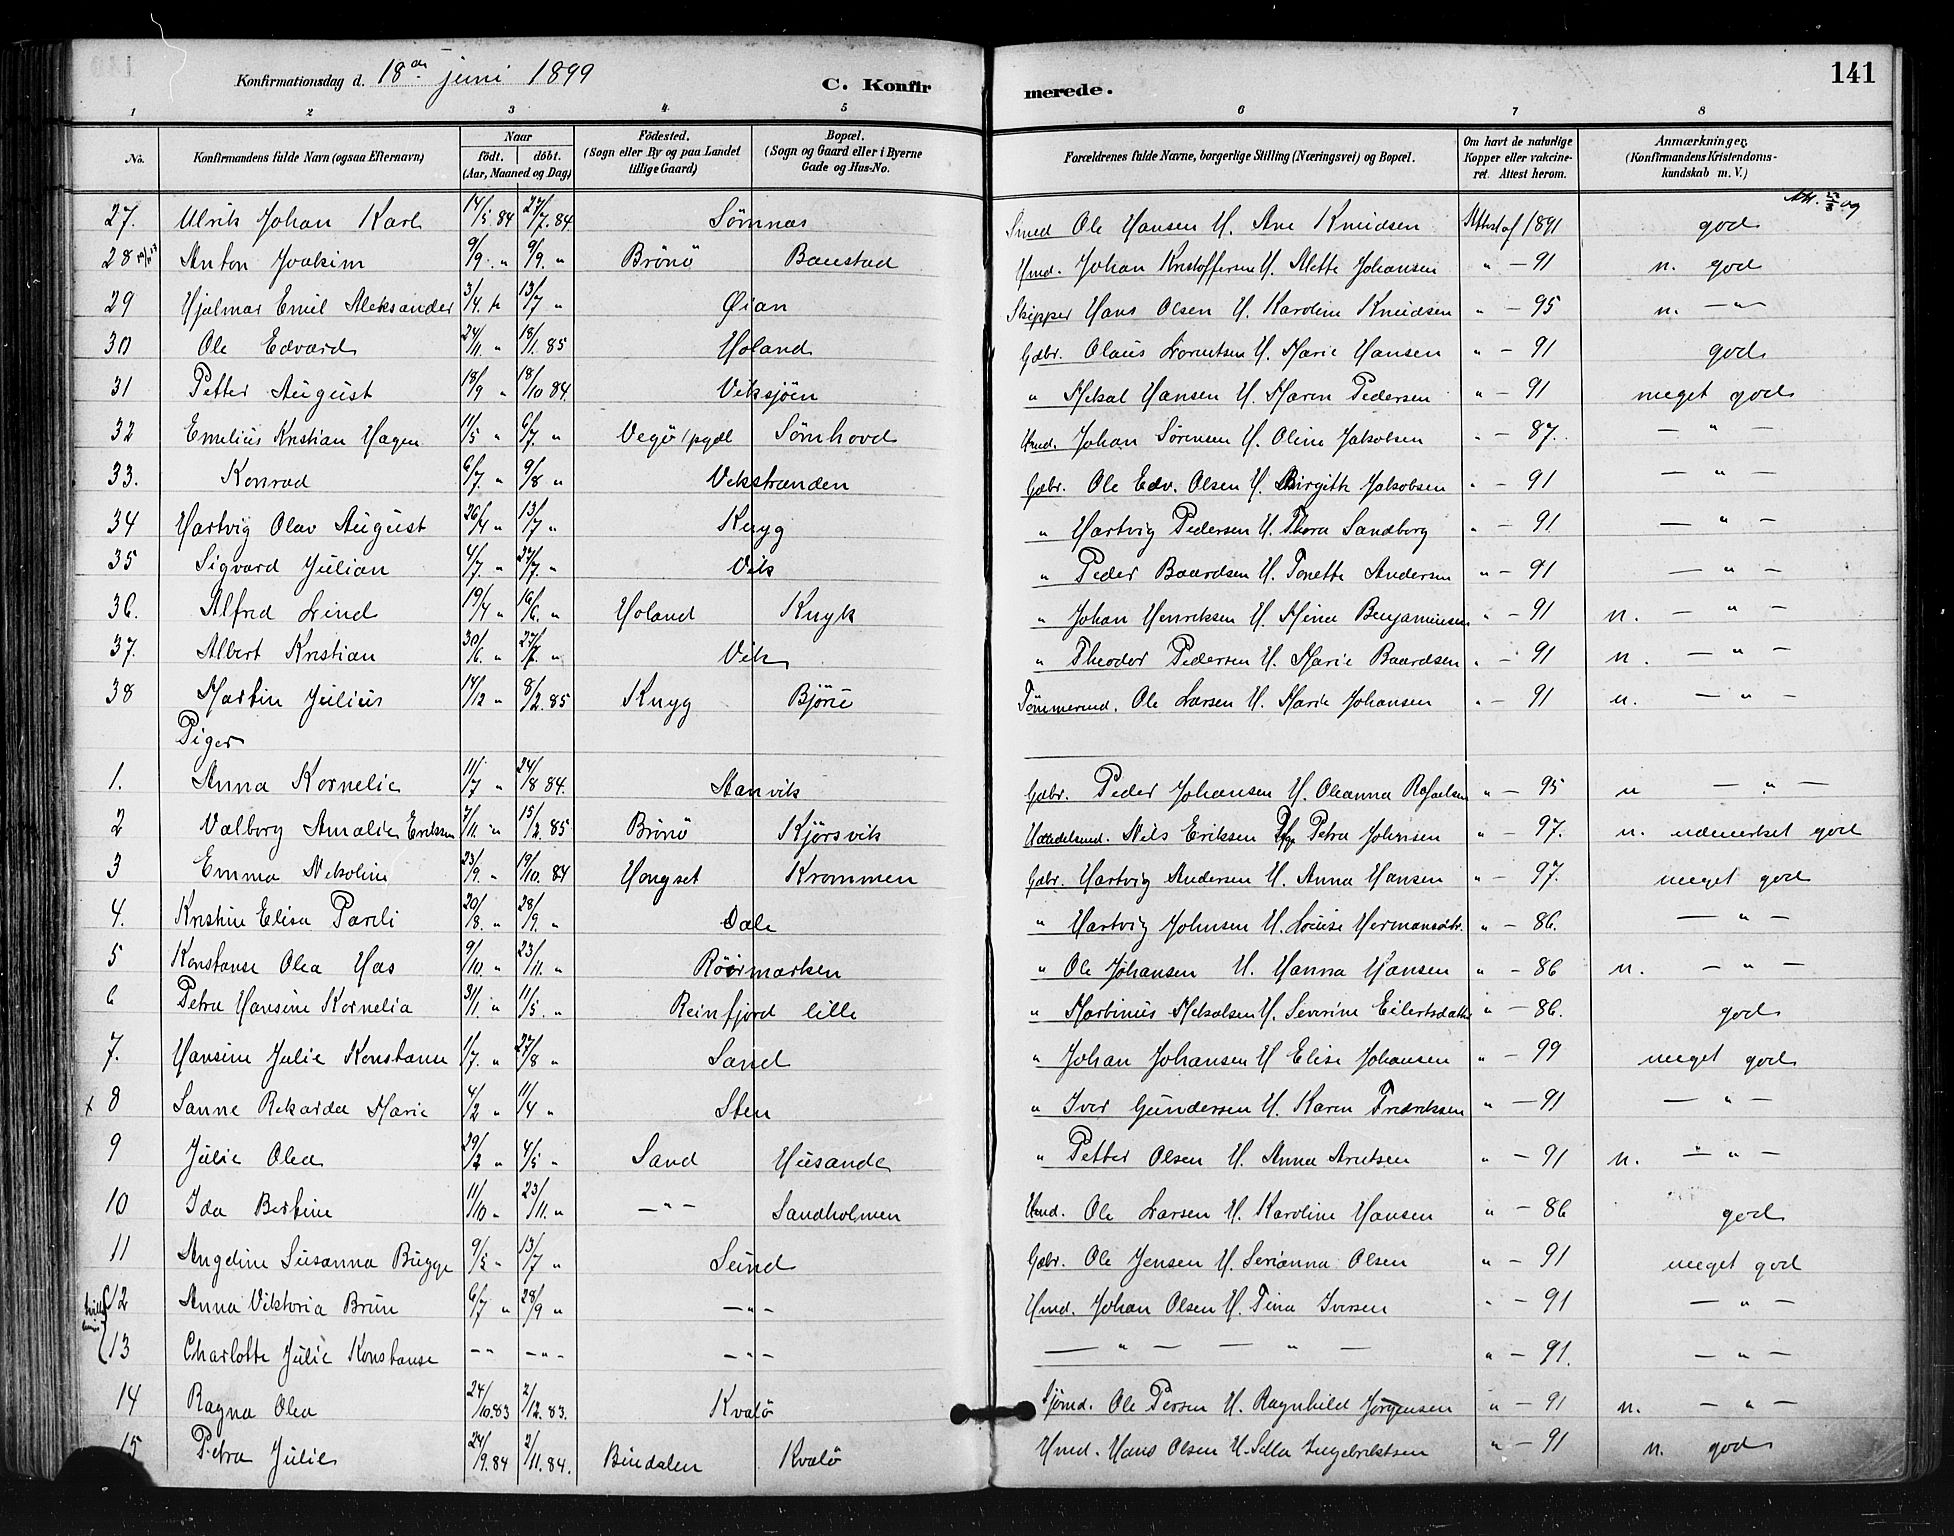 Konfirmationsdag d. 18de juni 1899 C. Konfirmerede. 141
1 2 3 4 5 6 7 8
No. Konfirmandens fulde Navn (ogsaa Efternavn) Naar født. døbt. (Aar, Maaned og Dag) Fødested. (Sogn eller By og paa Landet tillige Gaard) Bopæl. (Sogn og Gaard eller i Byerne Gade og Hus-No. Forældrenes fulde Navne, borgerlige Stilling (Næringsvei) og Bopæl. Om havt de naturlige Kopper eller vakcineret. Attest herom. Anmærkninger, (Konfirmandens Kristendomskundskab m. V.)
27. Ulrik Johan Karl 14/5 84 27/7. 84 Sømnas Smed Ole Hansen H. Ane Knudsen Attest af 1891 god
28 Anton Joakim 9/9. " 9/9. " Brønø Baustad Hmd. Johan Kristoffersen H. Alette Johansen " - 91 n. god
29 Hjalmar Emil Aleksander 3/4. " 13/7 " Øian Skipper Hans Olsen H. Karoline Knudsen " - 95 n. - " -
30 Ole Edvard 24/11. " 18/1. 85 Holand Gdbr. Olaus Lorentsen H. Marie Hansen " - 91 god
31 Petter August 18/9 " 18/10 84. Viksjøen " Mikal Hansen H. Maren Pedersen " - 91 meget god
32 Emelius Kristian Hagen 11/5 " 6/7. " Vegø pgdl Sømhovd Hmd. Johan Sørensen H. Oline Jakobsen " - 87. - " -
33. Konrad 6/7. " 9/8 " Vikstranden Gdbr. Ole Edv. Olsen H. Birgitte Jakobsen " - 91 - " -
34 Hartvig Olav August 26/4 " 13/7 " Knyg " Hartvig Pedersen H. Thora Sandberg " - 91 - " -
35 Sigvard Julian 4/7. " 27/7. " Vik " Peder Baardsen H. Tonette Andersen " - 91 - " -
36. Alfred Lind 19/4 " 16/6. " Holand Knyk " Johan Henriksen H. Mina Benjaminsen " - 91 n. - " -
37. Albert Kristian 30/6. " 27/7. " Vik " Theodor Pedersen H. Marie Baardsen " - 91 n. - " -
38 Martin Julius 14/12 " 8/2. 85 Knyg Bjørii Tømmermd. Ole Larsen H. Marie Johansen " - 91 n. - " -
Piger
1. Anna Kornelie 11/7 " 24/8 84. Stanvik Gdbr. Peder Johansen H. Oleanna Rafaelsen " - 95 n - " -
2 Valborg Amalie Eriksen 7/11. " 15/2. 85 Brønø Kjørsvik Nils Eriksen Petra Johnsen " - 97. n. udmerket god
3 Emma Nikoline 23/9. " 19/10. 84 Hongset Krommen Gdbr. Hartvig Andersen H. Anna Hansen " - 97. meget god
4. Kristine Elisa Pareli 20/8. " 28/9. " Dale " Hartvig Johnsen H. Louise Hermansdtr. " - 86. - " -
5 Konstanse Olea Has 9/10. " 23/11. " Røirmarken " Ole Johansen H. Hanna Hansen " - 86 n. - " -
6 Petra Hansine Kornelia 31/1. " 11/5. " Reinfjord lille " Martinus Mikalsen H. Severine Eilertsdatter " - 86. god
7. Hansine Julie Konstanse 1/7. " 27/8 " Sand " Johan Johansen H Elise Johansen " - 99 meget god
x 8 Sanne Rikarda Marie 4/2 " 11/4 " Sten " Iver Gundersen H. Karen Fredriksen " - 91 - " -
9 Julie Olea 29/2 " 4/5 " Sand Husande " Petter Olsen H. Anna Arntsen " - 91 n. - " -
10 Ida Bertine 11/10 " 23/11. " - " - Sandholmen Hmd. Ole Larsen H. Karoline Hansen " - 86 god
11 Angeline Susanna Bugge 9/5 " 13/7 " Sund Gdbr. Ole Jensen H. Serianna Olsen " - 91 meget god
12 Anna Viktoria Brun 6/7 " 28/9 " - " - Hmd. Johan Olsen H. Tina Iversen " - 91 - " -
13 Charlotte Julie Konstanse - " - - " - - " - - " - - " - " - 91. - " -
14 Ragna Olea 24/10. 83 2/12. 83. Kvalø Sjømd. Ole Persen H. Ragnhild Jørgensen " - 91 n. - " -
15 Petra Julie 24/9. 84 2/11. 84. Bindalen Kvalø Hmd. Hans Olsen H. Sella Ingebriktsen " - 91 n. god